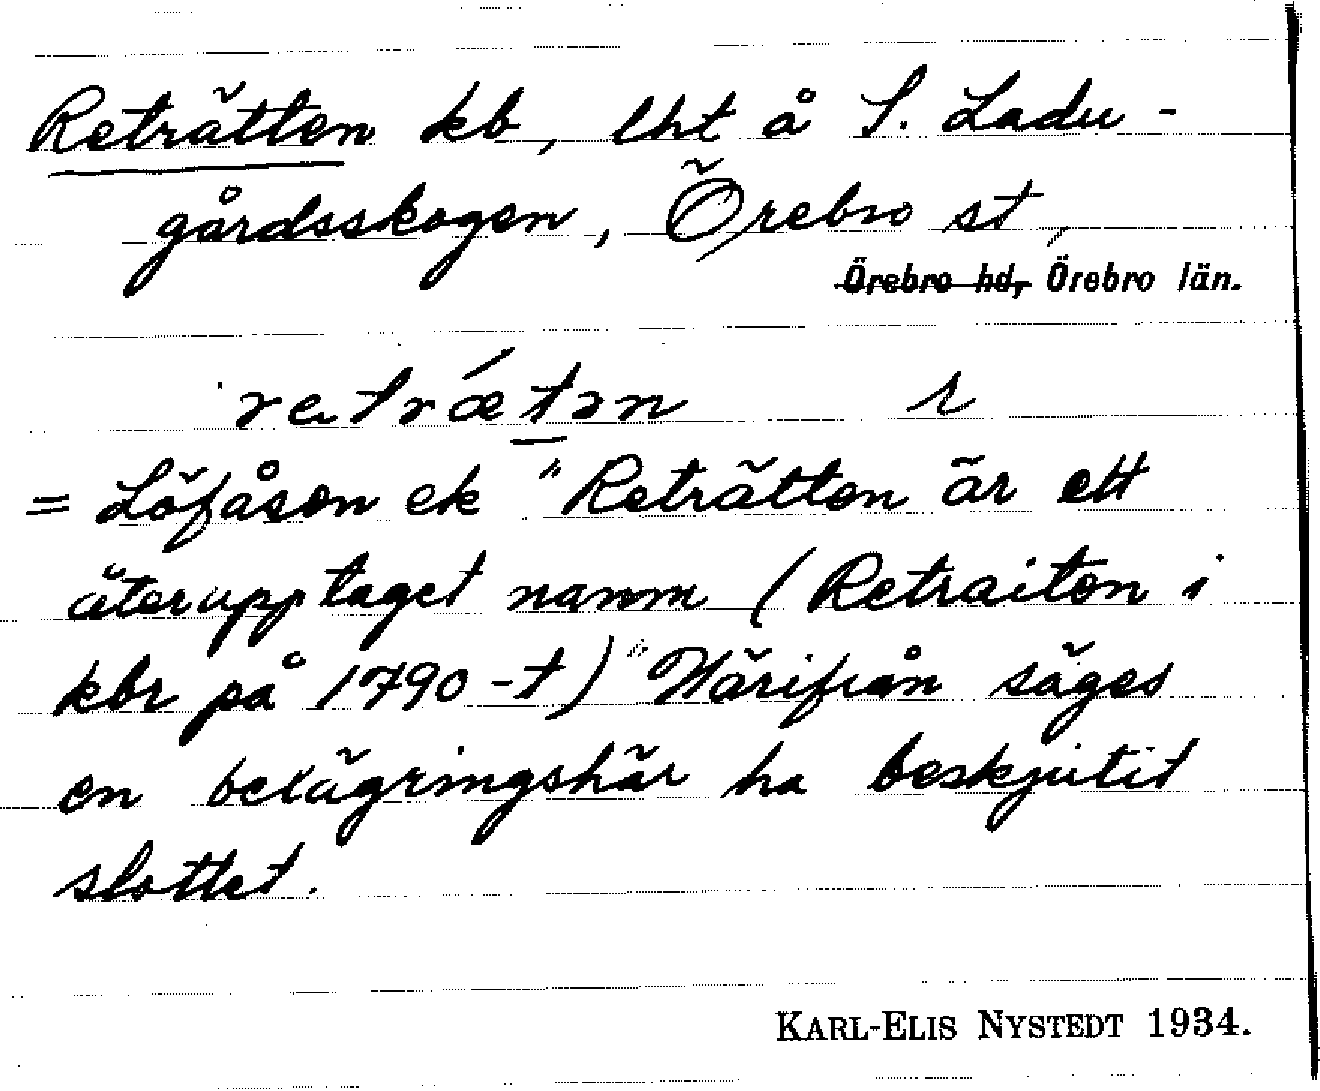 Reträtten kb, lht å S. Ladu-
gårdsskogen, Örebro st,
Örebro hd, Örebro län.
retrǽtən r
= Löfåsen ek "Reträtten är ett
återupptaget namn (Retraiten i
kbr på 1790-t)" Härifrån säges
en belägringshär ha beskjutit
slottet.
KARL-ELIS NYSTEDT 1934.